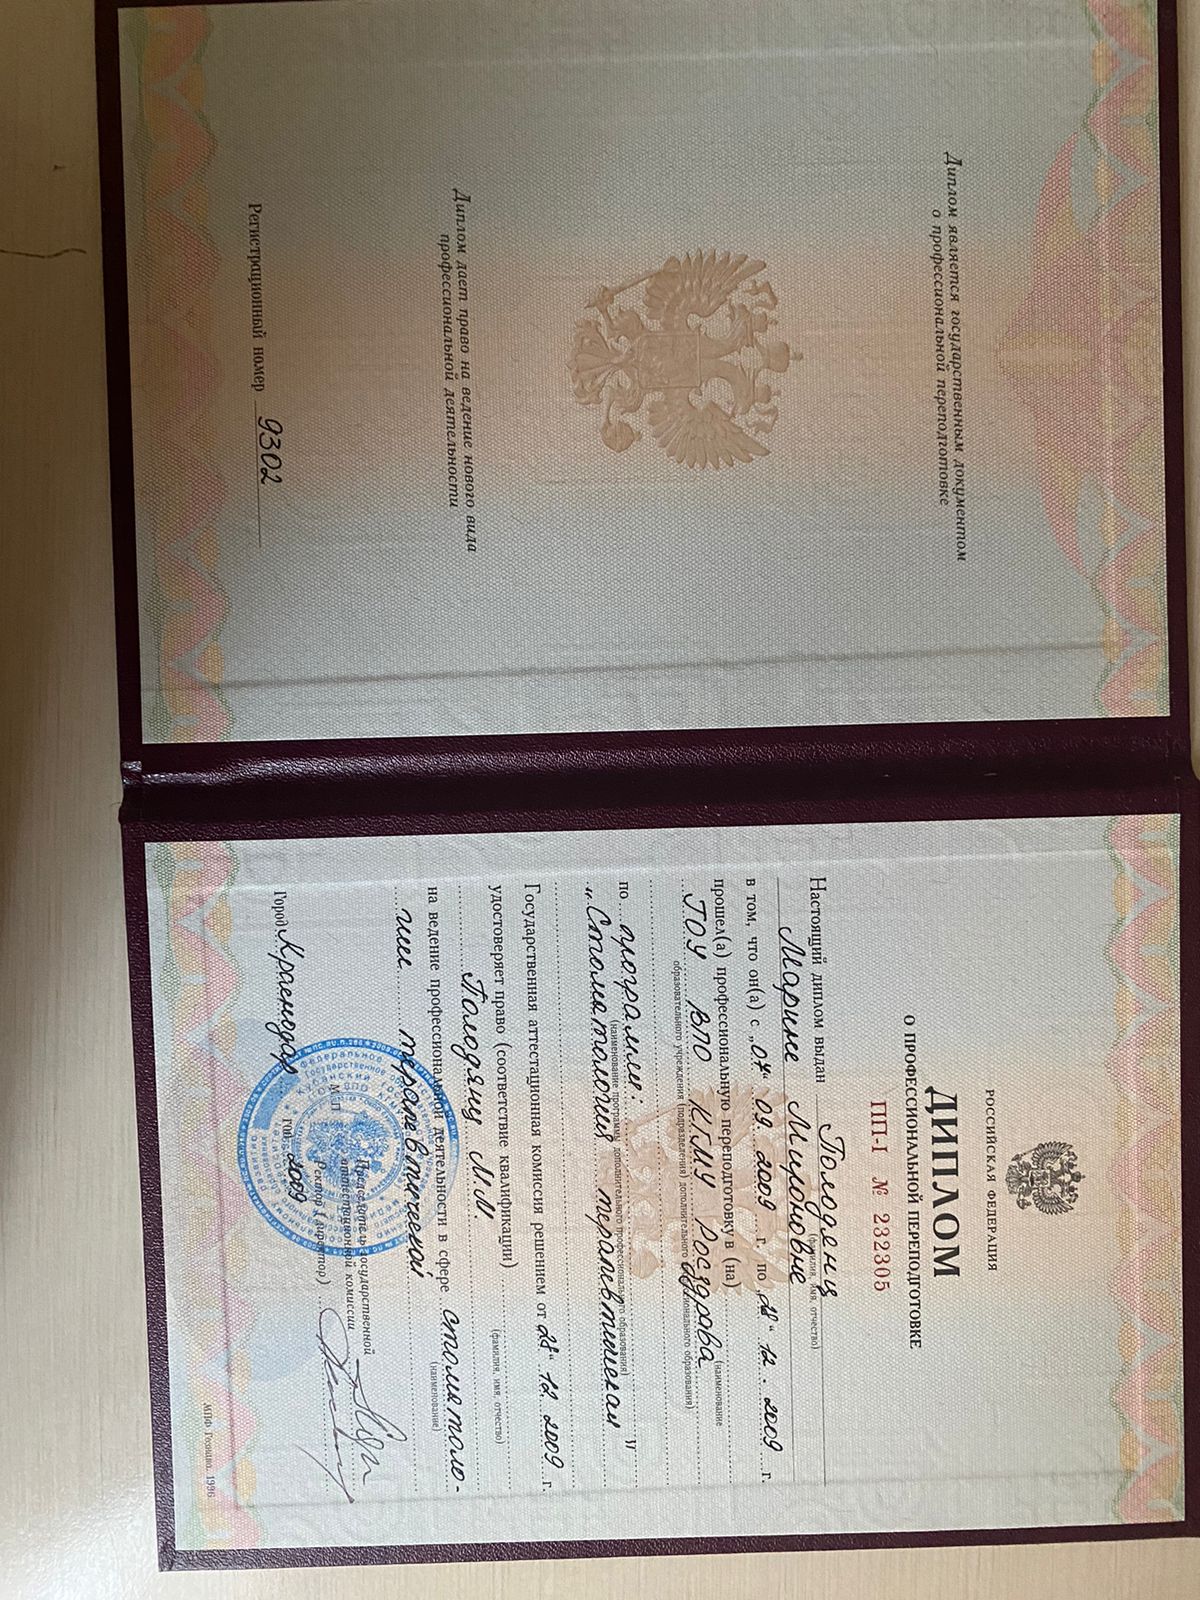 Диплом является государственным документом
о профессиональной переподготовке
Диплом дает право на ведение нового вида
профессиональной деятельности
Регистрационный номер 9302
РОССИЙСКАЯ ФЕДЕРАЦИЯ
ДИПЛОМ
О ПРОФЕССИОНАЛЬНОЙ ПЕРЕПОДГОТОВКЕ
ПП-I № 232305
Настоящий диплом выдан Полодянц
(фамилия, имя, отчество)
Марине Мироновне
в том, что он(а) с „07“ 09. 2009 г. по „28“ 12. 2009 г.
прошел(а) профессиональную переподготовку в (на)
(наименование
ГОУ ВПО КГМУ Росздрава
образовательного учреждения (подразделения) дополнительного профессионального образования)
по программе:
(наименование программы дополнительного профессионального образования)
„Стоматология терапевтическая"
Государственная аттестационная комиссия решением от „28“ 12. 2009 г.
удостоверяет право (соответствие квалификации)
(фамилия, имя, отчество)
Полодянц М.М.
на ведение профессиональной деятельности в сфере стоматоло-
(наименование)
гии терапевтической
Председатель государственной
аттестационной комиссии
М П
Ректор (директор)
Город Краснодар год 2009
МПФ Гознака. 1996